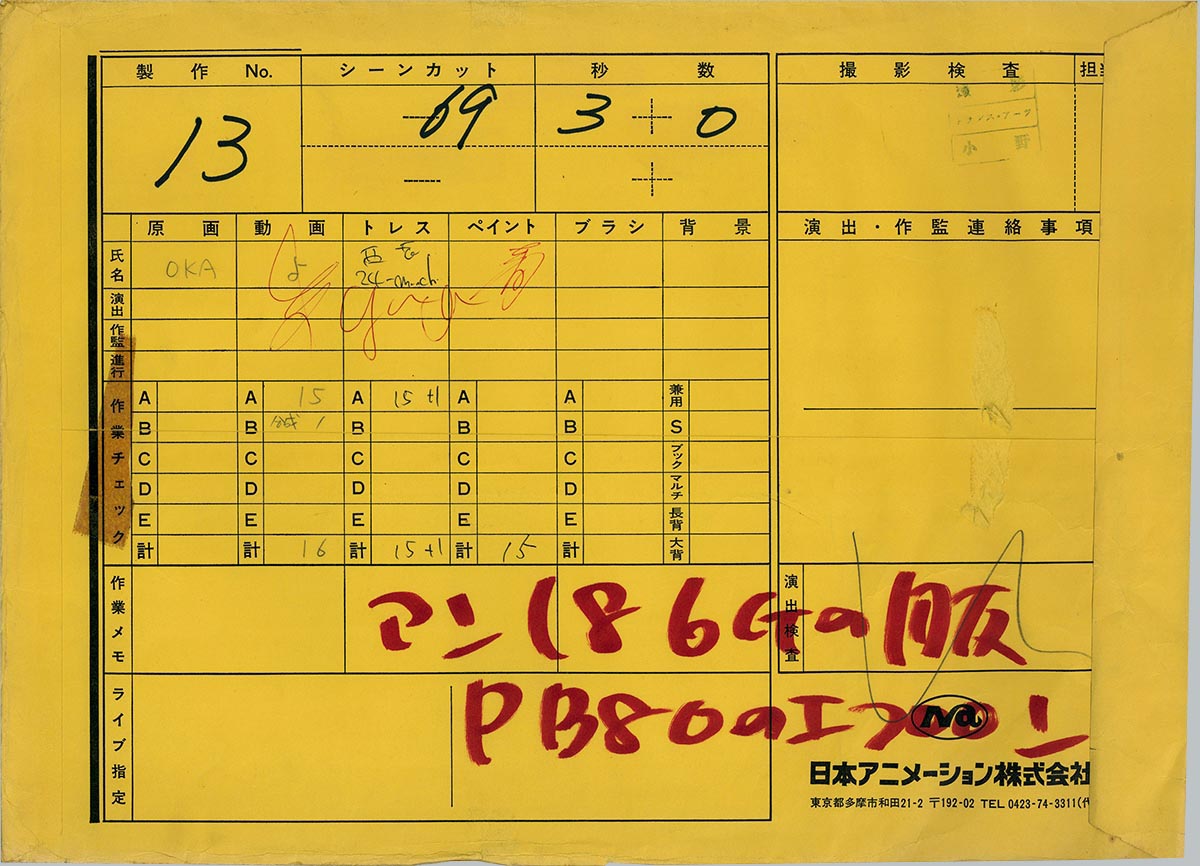 製作 No. シーンカット 秒数 撮影検査 担当
13 69 3 + 0
小野
原画 動画 トレス ペイント ブラシ 背景 演出・作監連絡事項
氏名 OKA よ
24-m.ch.
演出
作監
進行
作業チェック
A A 15 A 15+1 A A 兼用
B B 1 B B B S
C C C C C ブック
D D D D D マルチ
E E E E E 長背
計 計 16 計 15+1 計 15 計 大背
作業メモ
演出検査
アンは86Gの服
ライブ指定
PB80のエプロン
Na
日本アニメーション株式会社
東京都多摩市和田21-2 〒192-02 TEL 0423-74-3311(代